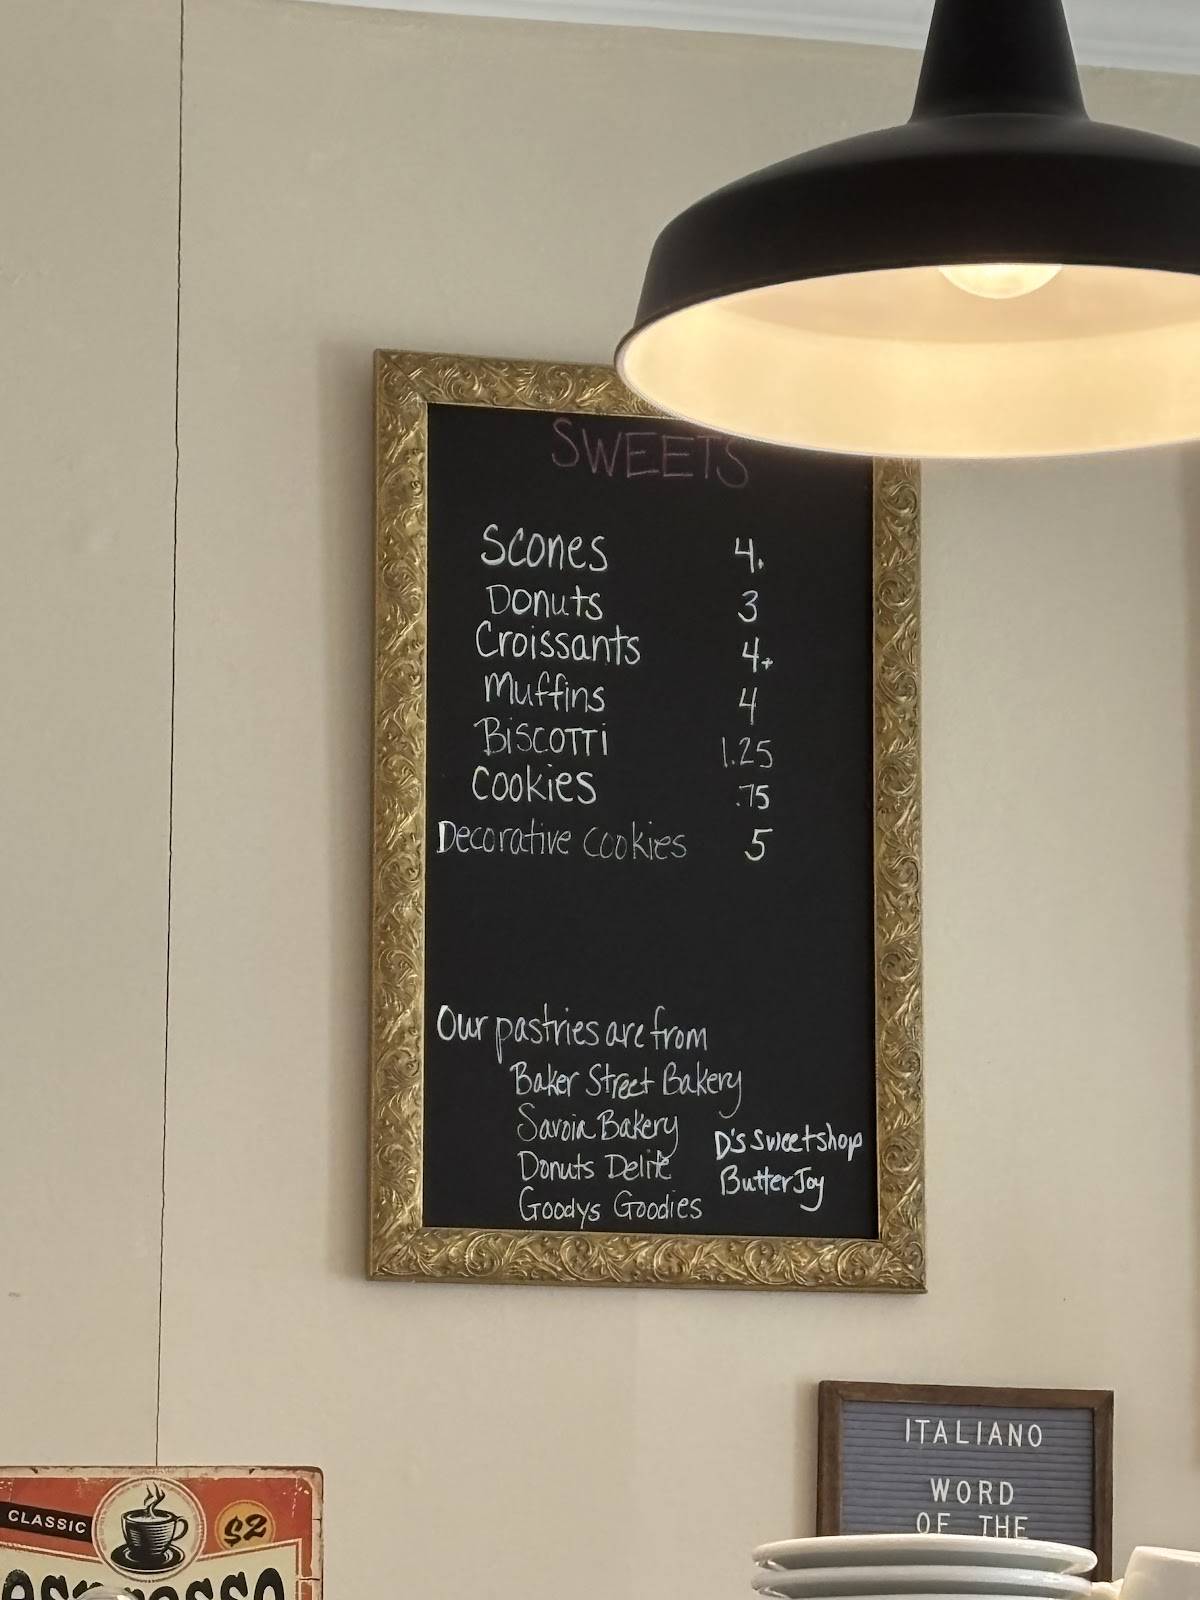 SWEETS
Scones 4.
Donuts 3
Croissants 4+
Muffins 4
BiSCOTTi 1.25
Cookies .75
Decorative cookies 5
Our pastries are from
Baker Street Bakery
Savoia Bakery
Donuts Delite
Goodys Goodies
D's Sweetshop
ButterJoy
ITALIANO
WORD
OF THE
CLASSIC
$2
espresso